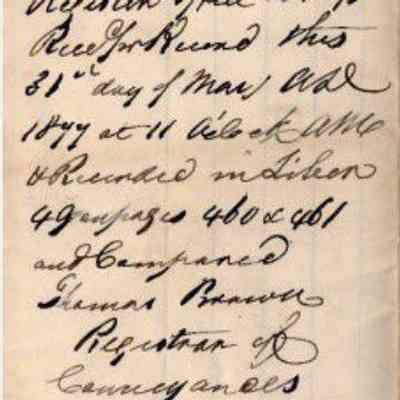 Register of
Recd for Record this
31st day of May AD
1877 at 11 O'clock AM
& Recorded in Liber
49 on pages 460 & 461
and Compared
Thomas Brown
Registrar of
Conveyances